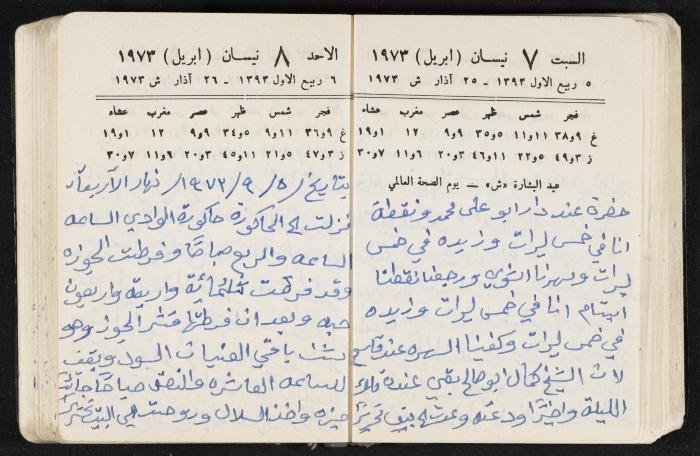 السبت ٧ نيسان (ابريل) ١٩٧٣
٥ ربيع الاول ١٣٩٣ ـ ٢٥ آذار ش ١٩٧٣
فجر شمس ظهر عصر مغرب عشاء
غ ٩و٣٨ ١١و١١ ٥و٣٥ ٩و٩ ١٢ ١و١٩
ز ٣و٤٩ ٥و٢٢ ١١و٤٦ ٣و٢٠ ٦و١١ ٧و٣٠
عيد البشارة «ش» ـ يوم الصحة العالمي
حضرة عند دار ابو علي محمد ونقطة
انا في خمس ليرات وزيده في خمس
ليرات وسهرنا ورجعنا نقطنا
انا في خمس ليرات وزيده
في خمس ليرات وكفينا السهره عند
لان الشيخ كمال ابو صالح بقي عنده
الليلة واخيرًا ودعته
الاحد ٨ نيسان (ابريل) ١٩٧٣
٦ ربيع الاول ١٣٩٣ ـ ٢٦ آذار ش ١٩٧٣
فجر شمس ظهر عصر مغرب عشاء
غ ٩و٣٦ ١١و٩ ٥و٣٤ ٩و٩ ١٢ ١و١٩
ز ٣و٤٧ ٥و٢١ ١١و٤٥ ٣و٢٠ ٦و١١ ٧و٣٠
بتاريخ /٥/٩/١٩٧٣/ نهار الآربعآء
نزلت الحاكوره حاكورة الوادي الساعه
السابعه والربع صباحًا وفرطت الجوزه
وقد فرطت ثلثمائية واربعة واربعون
حبه وبعد ان فرطتها قشر الجوز وهو
باقي الفنيات السود وبقيت
للساعه العاشره والنصف صباحًا
واخذ السلال وروحت الى البيت